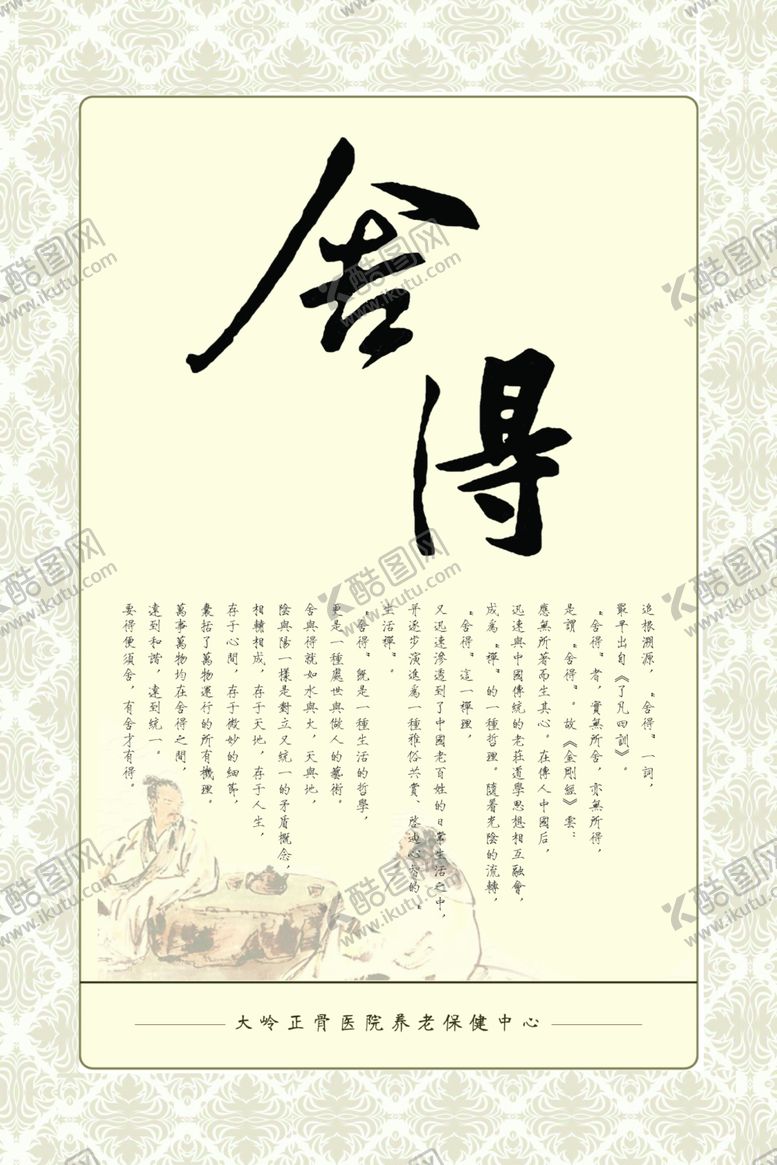 舍
得
追根溯源，“舍得”一詞，
最早出自《了凡四訓》。
“舍得”者，實無所舍，亦無所得，
是謂“舍得”。故《金剛經》雲：
應無所著而生其心。在傳入中國后，
迅速與中國傳統的老莊道學思想相互融會，
成爲“禪”的一種哲理。隨着光陰的流轉，
“舍得”這一禪理，
又迅速滲透到了中國老百姓的日常生活之中，
并逐步演進爲一種雅俗共賞、啓迪心智的“
生活禪”。
“舍得”既是一種生活的哲學，
更是一種處世與做人的藝術。
舍與得就如水與火，天與地，
陰與陽一樣是對立又統一的矛盾概念，
相輔相成，存于天地，存于人生，
存于心間，存于微妙的細節，
囊括了萬物運行的所有機理。
萬事萬物均在舍得之間，
達到和諧，達到統一。
要得便須舍，有舍才有得。
大岭正骨医院养老保健中心
酷图网
www.ikutu.com